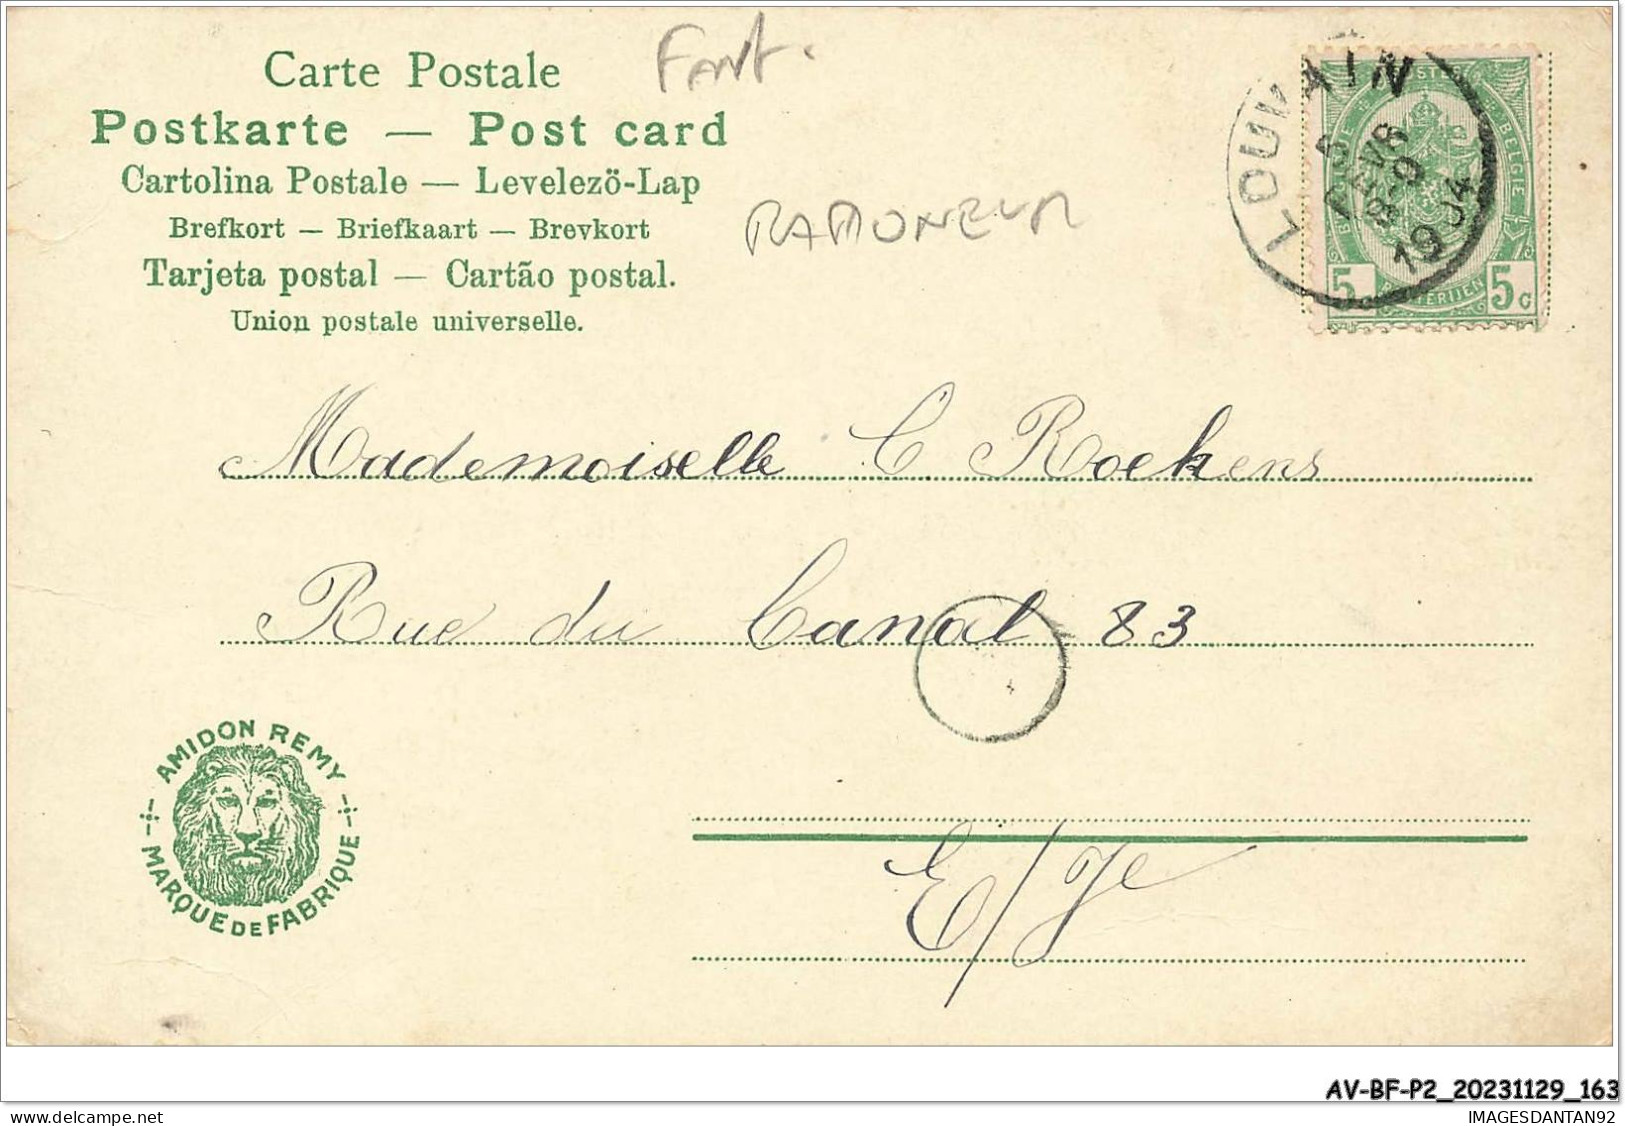 Carte Postale
Fant.
Postkarte — Post card
Cartolina Postale — Levelezö-Lap
Brefkort — Briefkaart — Brevkort
Tarjeta postal — Cartão postal.
Union postale universelle.
RAMONEUR
LOUVAIN
8-9
1904
BELGIE
POSTERIJEN
5 5c
Mademoiselle C Roekens
Rue du Canal 83
AMIDON REMY
MARQUE DE FABRIQUE
AV-BF-P2_20231129_163
delcampe.net
IMAGESDANTAN92